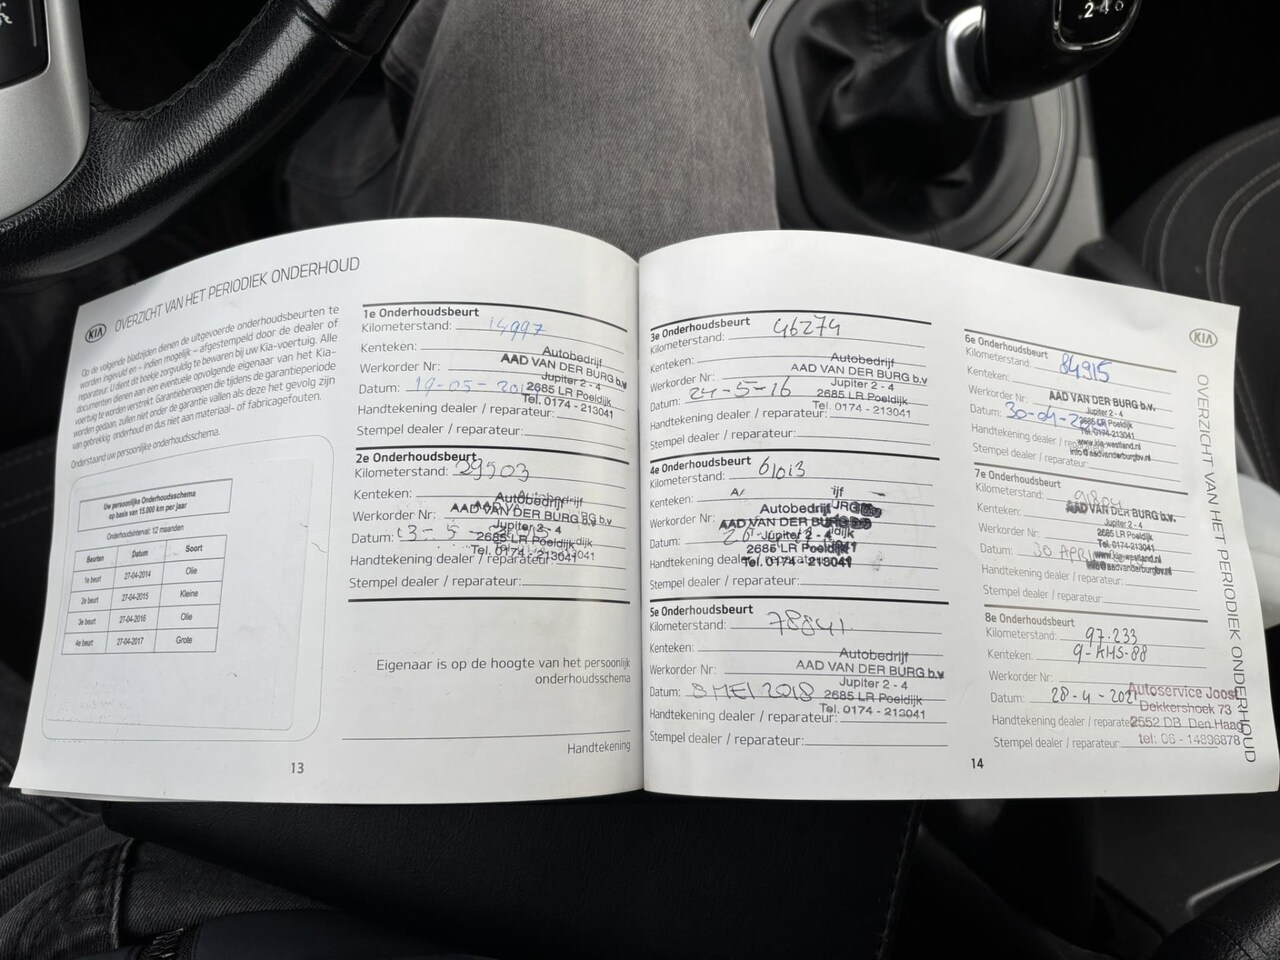 KIA OVERZICHT VAN HET PERIODIEK ONDERHOUD
Op de volgende bladzijden dienen de uitgevoerde onderhoudsbeurten te
worden ingevuld en – indien mogelijk – afgestempeld door de dealer of
reparateur. U dient dit boekje zorgvuldig te bewaren bij uw Kia-voertuig. Alle
documenten dienen aan een eventuele opvolgende eigenaar van het Kia-
voertuig te worden verstrekt. Garantieberoepen die tijdens de garantieperiode
worden gedaan, zullen niet onder de garantie vallen als deze het gevolg zijn
van gebrekkig onderhoud en dus niet aan materiaal- of fabricagefouten.
Onderstaand uw persoonlijke onderhoudsschema.
Uw persoonlijke Onderhoudsschema
op basis van 15.000 km per jaar
Onderhoudsinterval: 12 maanden
Beurten Datum Soort
1e beurt 27-04-2014 Olie
2e beurt 27-04-2015 Kleine
3e beurt 27-04-2016 Olie
4e beurt 27-04-2017 Grote
13
1e Onderhoudsbeurt
Kilometerstand: 14997
Kenteken:
Autobedrijf
Werkorder Nr:
AAD VAN DER BURG b.v
Jupiter 2 - 4
Datum: 19-05-201
2685 LR Poeldijk
Tel. 0174 - 213041
Handtekening dealer / reparateur:
Stempel dealer / reparateur:
2e Onderhoudsbeurt
Kilometerstand: 29503
Kenteken:
Autobedrijf
Werkorder Nr:
AAD VAN DER BURG b.v
Jupiter 2 - 4
Datum:
2685 LR Poeldijk
Tel. 0174 - 213041
Handtekening dealer / reparateur:
Stempel dealer / reparateur:
Eigenaar is op de hoogte van het persoonlijk
onderhoudsschema
Handtekening
3e Onderhoudsbeurt
Kilometerstand: 46274
Kenteken:
Autobedrijf
Werkorder Nr:
AAD VAN DER BURG b.v
Jupiter 2 - 4
Datum: 24-5-16
2685 LR Poeldijk
Tel. 0174 - 213041
Handtekening dealer / reparateur:
Stempel dealer / reparateur:
4e Onderhoudsbeurt
Kilometerstand: 61013
Kenteken:
Autobedrijf
Werkorder Nr:
AAD VAN DER BURG
Jupiter 2 - 4
Datum:
2685 LR Poeldijk
Tel. 0174 - 213041
Handtekening dealer / reparateur:
Stempel dealer / reparateur:
5e Onderhoudsbeurt
Kilometerstand: 78841
Kenteken:
Autobedrijf
Werkorder Nr:
AAD VAN DER BURG b.v
Jupiter 2 - 4
Datum: 8 MEI 2018
2685 LR Poeldijk
Tel. 0174 - 213041
Handtekening dealer / reparateur:
Stempel dealer / reparateur:
14
6e Onderhoudsbeurt
Kilometerstand: 84915
Kenteken:
Werkorder Nr:
AAD VAN DER BURG b.v.
Jupiter 2 - 4
Datum: 30-04-2
2685 LR Poeldijk
Tel. 0174-213041
Handtekening dealer / reparateur:
www.kia-westland.nl
info@aadvanderburgbv.nl
Stempel dealer / reparateur:
7e Onderhoudsbeurt
Kilometerstand:
Kenteken:
AAD VAN DER BURG b.v.
Jupiter 2 - 4
Werkorder Nr:
2685 LR Poeldijk
Tel. 0174-213041
Datum: 30 APR
www.kia-westland.nl
info@aadvanderburgbv.nl
Handtekening dealer / reparateur:
Stempel dealer / reparateur:
8e Onderhoudsbeurt
Kilometerstand: 97.233
Kenteken: 9-KHS-88
Werkorder Nr:
Datum: 28-4-2021
Autoservice Joost
Dekkershoek 73
Handtekening dealer / reparateur:
2552 DB Den Haag
Stempel dealer / reparateur:
tel: 06 - 14896878
KIA
OVERZICHT VAN HET PERIODIEK ONDERHOUD
2 4 6